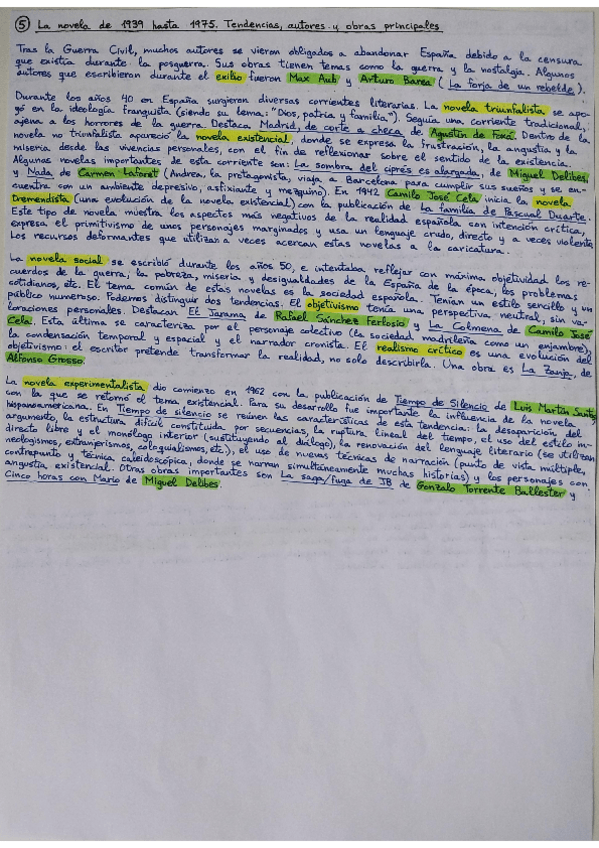 ⑤ La novela de 1939 hasta 1975. Tendencias, autores y obras principales
Tras la Guerra Civil, muchos autores se vieron obligados a abandonar España debido a la censura
que existía durante la posguerra. Sus obras tienen temas como la guerra y la nostalgia. Algunos
autores que escribieron durante el exilio fueron Max Aub y Arturo Barea (La forja de un rebelde).
Durante los años 40 en España surgieron diversas corrientes literarias. La novela triunfalista se apo-
yó en la ideología franquista (siendo su lema: "Dios, patria y familia"). Seguía una corriente tradicional,
ajena a los horrores de la guerra. Destaca Madrid, de corte a checa de Agustín de Foxá. Dentro de la
novela no triunfalista apareció la novela existencial, donde se expresa la frustración, la angustia y la
miseria desde las vivencias personales, con el fin de reflexionar sobre el sentido de la existencia.
Algunas novelas importantes de esta corriente son: La sombra del ciprés es alargada, de Miguel Delibes,
y Nada, de Carmen Laforet (Andrea, la protagonista, viaja a Barcelona para cumplir sus sueños y se en-
cuentra con un ambiente depresivo, asfixiante y mezquino). En 1942 Camilo José Cela inicia la novela
tremendista (una evolución de la novela existencial) con la publicación de La familia de Pascual Duarte.
Este tipo de novela muestra los aspectos más negativos de la realidad española con intención crítica,
expresa el primitivismo de unos personajes marginados y usa un lenguaje crudo, directo y a veces violento.
Los recursos deformantes que utilizan a veces acercan estas novelas a la caricatura.
La novela social se escribió durante los años 50, e intentaba reflejar con máxima objetividad los re-
cuerdos de la guerra; la pobreza, miseria y desigualdades de la España de la época, los problemas
cotidianos, etc. El tema común de estas novelas es la sociedad española. Tenían un estilo sencillo y un
público numeroso. Podemos distinguir dos tendencias. El objetivismo tenía una perspectiva neutral, sin va-
loraciones personales. Destacan El Jarama de Rafael Sánchez Ferlosio y La Colmena de Camilo José
Cela. Esta última se caracteriza por el personaje colectivo (la sociedad madrileña como un enjambre),
la condensación temporal y espacial y el narrador cronista. El realismo crítico es una evolución del
objetivismo: el escritor pretende transformar la realidad, no solo describirla. Una obra es La Zanja, de
Alfonso Grosso.
La novela experimentalista dio comienzo en 1962 con la publicación de Tiempo de Silencio de Luis Martín Santos,
con la que se retomó el tema existencial. Para su desarrollo fue importante la influencia de la novela
hispanoamericana. En Tiempo de silencio se reúnen las características de esta tendencia: la desaparición del
argumento, la estructura difícil constituida por secuencias, la ruptura lineal del tiempo, el uso del estilo in-
directo libre y el monólogo interior (sustituyendo al diálogo), la renovación del lenguaje literario (se utilizan
neologismos, extranjerismos, coloquialismos, etc.), el uso de nuevas técnicas de narración (punto de vista múltiple,
contrapunto y técnica caleidoscópica, donde se narran simultáneamente muchas historias) y los personajes con
angustia existencial. Otras obras importantes son La saga/fuga de JB de Gonzalo Torrente Ballester y
Cinco horas con Mario de Miguel Delibes.